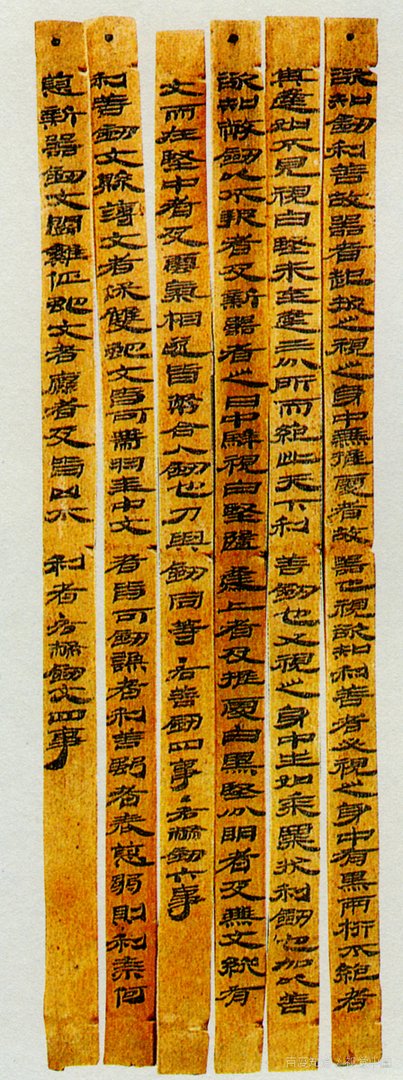 欲知劍利善故器者起拔之視之身中無推處者故器也視欲知利善者必視之身中有黑兩桁不絕者
其逢如不見視白堅未至逢三分所而絕此天下利善劍也又視之身中生如黍粟狀利劍也加以善
欲知幣劍以不報者及新器者之日中騂視白堅隨逢上者及推處白黑堅分明者及無文縱有
文而在堅中者及雲氣相遂皆幣合人劍也刀與劍同等·右善劍四事·右幣劍六事
利善劍文縣薄文者保雙蛇文皆可帶羽圭中文者皆可劍謙者利善強者表恿弱則利奈何
恿新器劍文鬬雞佂蛇文者麤者及皆凶不利者·右幣劍文四事